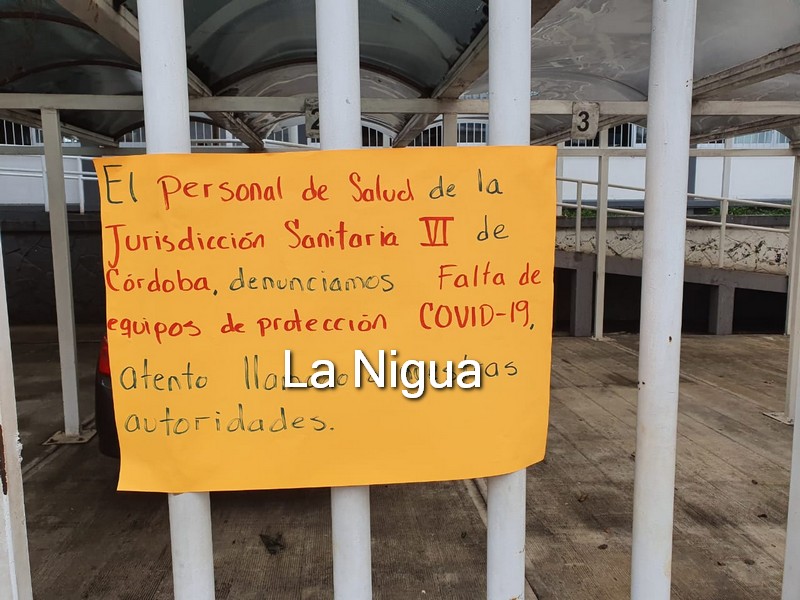 3
El Personal de Salud de la
Jurisdicción Sanitaria VI de
Córdoba, denunciamos Falta de
equipos de protección COVID-19,
atento
La Nigua
autoridades.